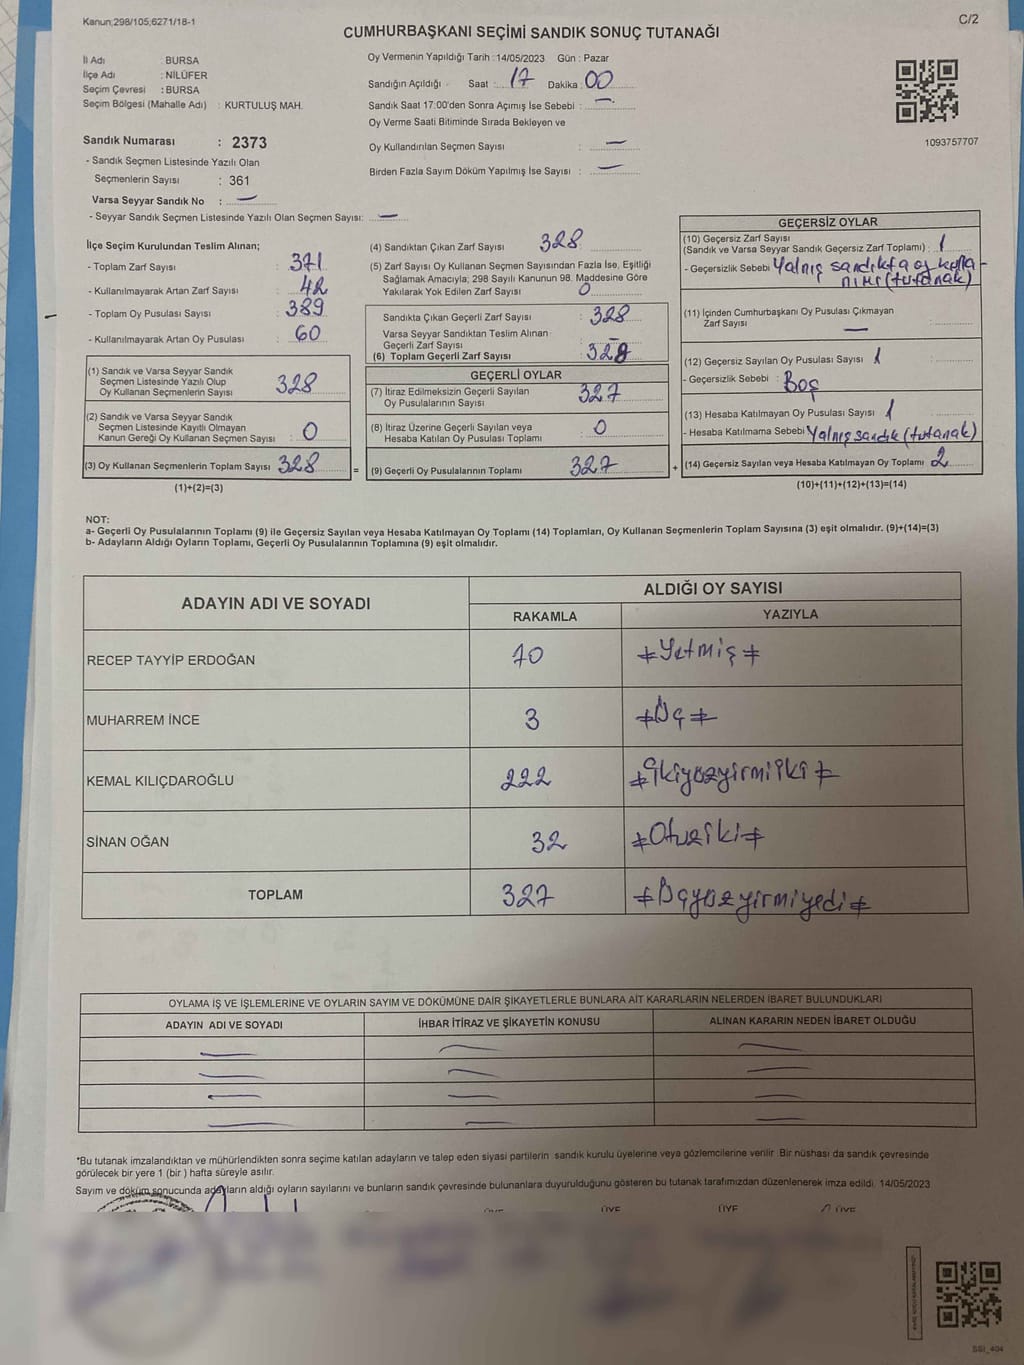 Kanun;298/105;6271/18-1
C/2
CUMHURBAŞKANI SEÇİMİ SANDIK SONUÇ TUTANAĞI
İl Adı : BURSA
İlçe Adı : NİLÜFER
Seçim Çevresi : BURSA
Seçim Bölgesi (Mahalle Adı) : KURTULUŞ MAH.
Sandık Numarası : 2373
- Sandık Seçmen Listesinde Yazılı Olan
Seçmenlerin Sayısı : 361
Varsa Seyyar Sandık No : —
- Seyyar Sandık Seçmen Listesinde Yazılı Olan Seçmen Sayısı: —
Oy Vermenin Yapıldığı Tarih : 14/05/2023 Gün : Pazar
Sandığın Açıldığı Saat : 17 Dakika : 00
Sandık Saat 17:00'den Sonra Açımış İse Sebebi : —
Oy Verme Saati Bitiminde Sırada Bekleyen ve
Oy Kullandırılan Seçmen Sayısı : —
Birden Fazla Sayım Döküm Yapılmış İse Sayısı : —
1093757707
İlçe Seçim Kurulundan Teslim Alınan;
- Toplam Zarf Sayısı : 371
- Kullanılmayarak Artan Zarf Sayısı : 42
- Toplam Oy Pusulası Sayısı : 389
- Kullanılmayarak Artan Oy Pusulası : 60
(1) Sandık ve Varsa Seyyar Sandık
Seçmen Listesinde Yazılı Olup
Oy Kullanan Seçmenlerin Sayısı : 328
(2) Sandık ve Varsa Seyyar Sandık
Seçmen Listesinde Kayıtlı Olmayan
Kanun Gereği Oy Kullanan Seçmen Sayısı : 0
(3) Oy Kullanan Seçmenlerin Toplam Sayısı : 328
(1)+(2)=(3)
(4) Sandıktan Çıkan Zarf Sayısı : 328
(5) Zarf Sayısı Oy Kullanan Seçmen Sayısından Fazla İse, Eşitliği
Sağlamak Amacıyla; 298 Sayılı Kanunun 98. Maddesine Göre
Yakılarak Yok Edilen Zarf Sayısı : 0
Sandıkta Çıkan Geçerli Zarf Sayısı : 328
Varsa Seyyar Sandıktan Teslim Alınan
Geçerli Zarf Sayısı : —
(6) Toplam Geçerli Zarf Sayısı : 328
=
GEÇERLİ OYLAR
(7) İtiraz Edilmeksizin Geçerli Sayılan
Oy Pusulalarının Sayısı : 327
(8) İtiraz Üzerine Geçerli Sayılan veya
Hesaba Katılan Oy Pusulası Toplamı : 0
(9) Geçerli Oy Pusulalarının Toplamı : 327
+
GEÇERSİZ OYLAR
(10) Geçersiz Zarf Sayısı
(Sandık ve Varsa Seyyar Sandık Geçersiz Zarf Toplamı) : 1
- Geçersizlik Sebebi : Yalnış sandıkta oy kulla-
nımı (tutanak)
(11) İçinden Cumhurbaşkanı Oy Pusulası Çıkmayan
Zarf Sayısı : —
(12) Geçersiz Sayılan Oy Pusulası Sayısı : 1
- Geçersizlik Sebebi : Boş
(13) Hesaba Katılmayan Oy Pusulası Sayısı : 1
- Hesaba Katılmama Sebebi : Yalnış sandık (tutanak)
(14) Geçersiz Sayılan veya Hesaba Katılmayan Oy Toplamı : 2
(10)+(11)+(12)+(13)=(14)
NOT:
a- Geçerli Oy Pusulalarının Toplamı (9) ile Geçersiz Sayılan veya Hesaba Katılmayan Oy Toplamı (14) Toplamları, Oy Kullanan Seçmenlerin Toplam Sayısına (3) eşit olmalıdır. (9)+(14)=(3)
b- Adayların Aldığı Oyların Toplamı, Geçerli Oy Pusulalarının Toplamına (9) eşit olmalıdır.
ADAYIN ADI VE SOYADI
ALDIĞI OY SAYISI
RAKAMLA YAZIYLA
RECEP TAYYİP ERDOĞAN 70 ≠Yetmiş≠
MUHARREM İNCE 3 ≠Üç≠
KEMAL KILIÇDAROĞLU 222 ≠İkiyüzyirmiiki≠
SİNAN OĞAN 32 ≠Otuziki≠
TOPLAM 327 ≠Üçyüzyirmiyedi≠
OYLAMA İŞ VE İŞLEMLERİNE VE OYLARIN SAYIM VE DÖKÜMÜNE DAİR ŞİKAYETLERLE BUNLARA AİT KARARLARIN NELERDEN İBARET BULUNDUKLARI
ADAYIN ADI VE SOYADI İHBAR İTİRAZ VE ŞİKAYETİN KONUSU ALINAN KARARIN NEDEN İBARET OLDUĞU
*Bu tutanak imzalandıktan ve mühürlendikten sonra seçime katılan adayların ve talep eden siyasi partilerin sandık kurulu üyelerine veya gözlemcilerine verilir. Bir nüshası da sandık çevresinde
görülecek bir yere 1 (bir ) hafta süreyle asılır.
Sayım ve döküm sonucunda adayların aldığı oyların sayılarını ve bunların sandık çevresinde bulunanlara duyurulduğunu gösteren bu tutanak tarafımızdan düzenlenerek imza edildi. 14/05/2023
ÜYE ÜYE ÜYE ÜYE